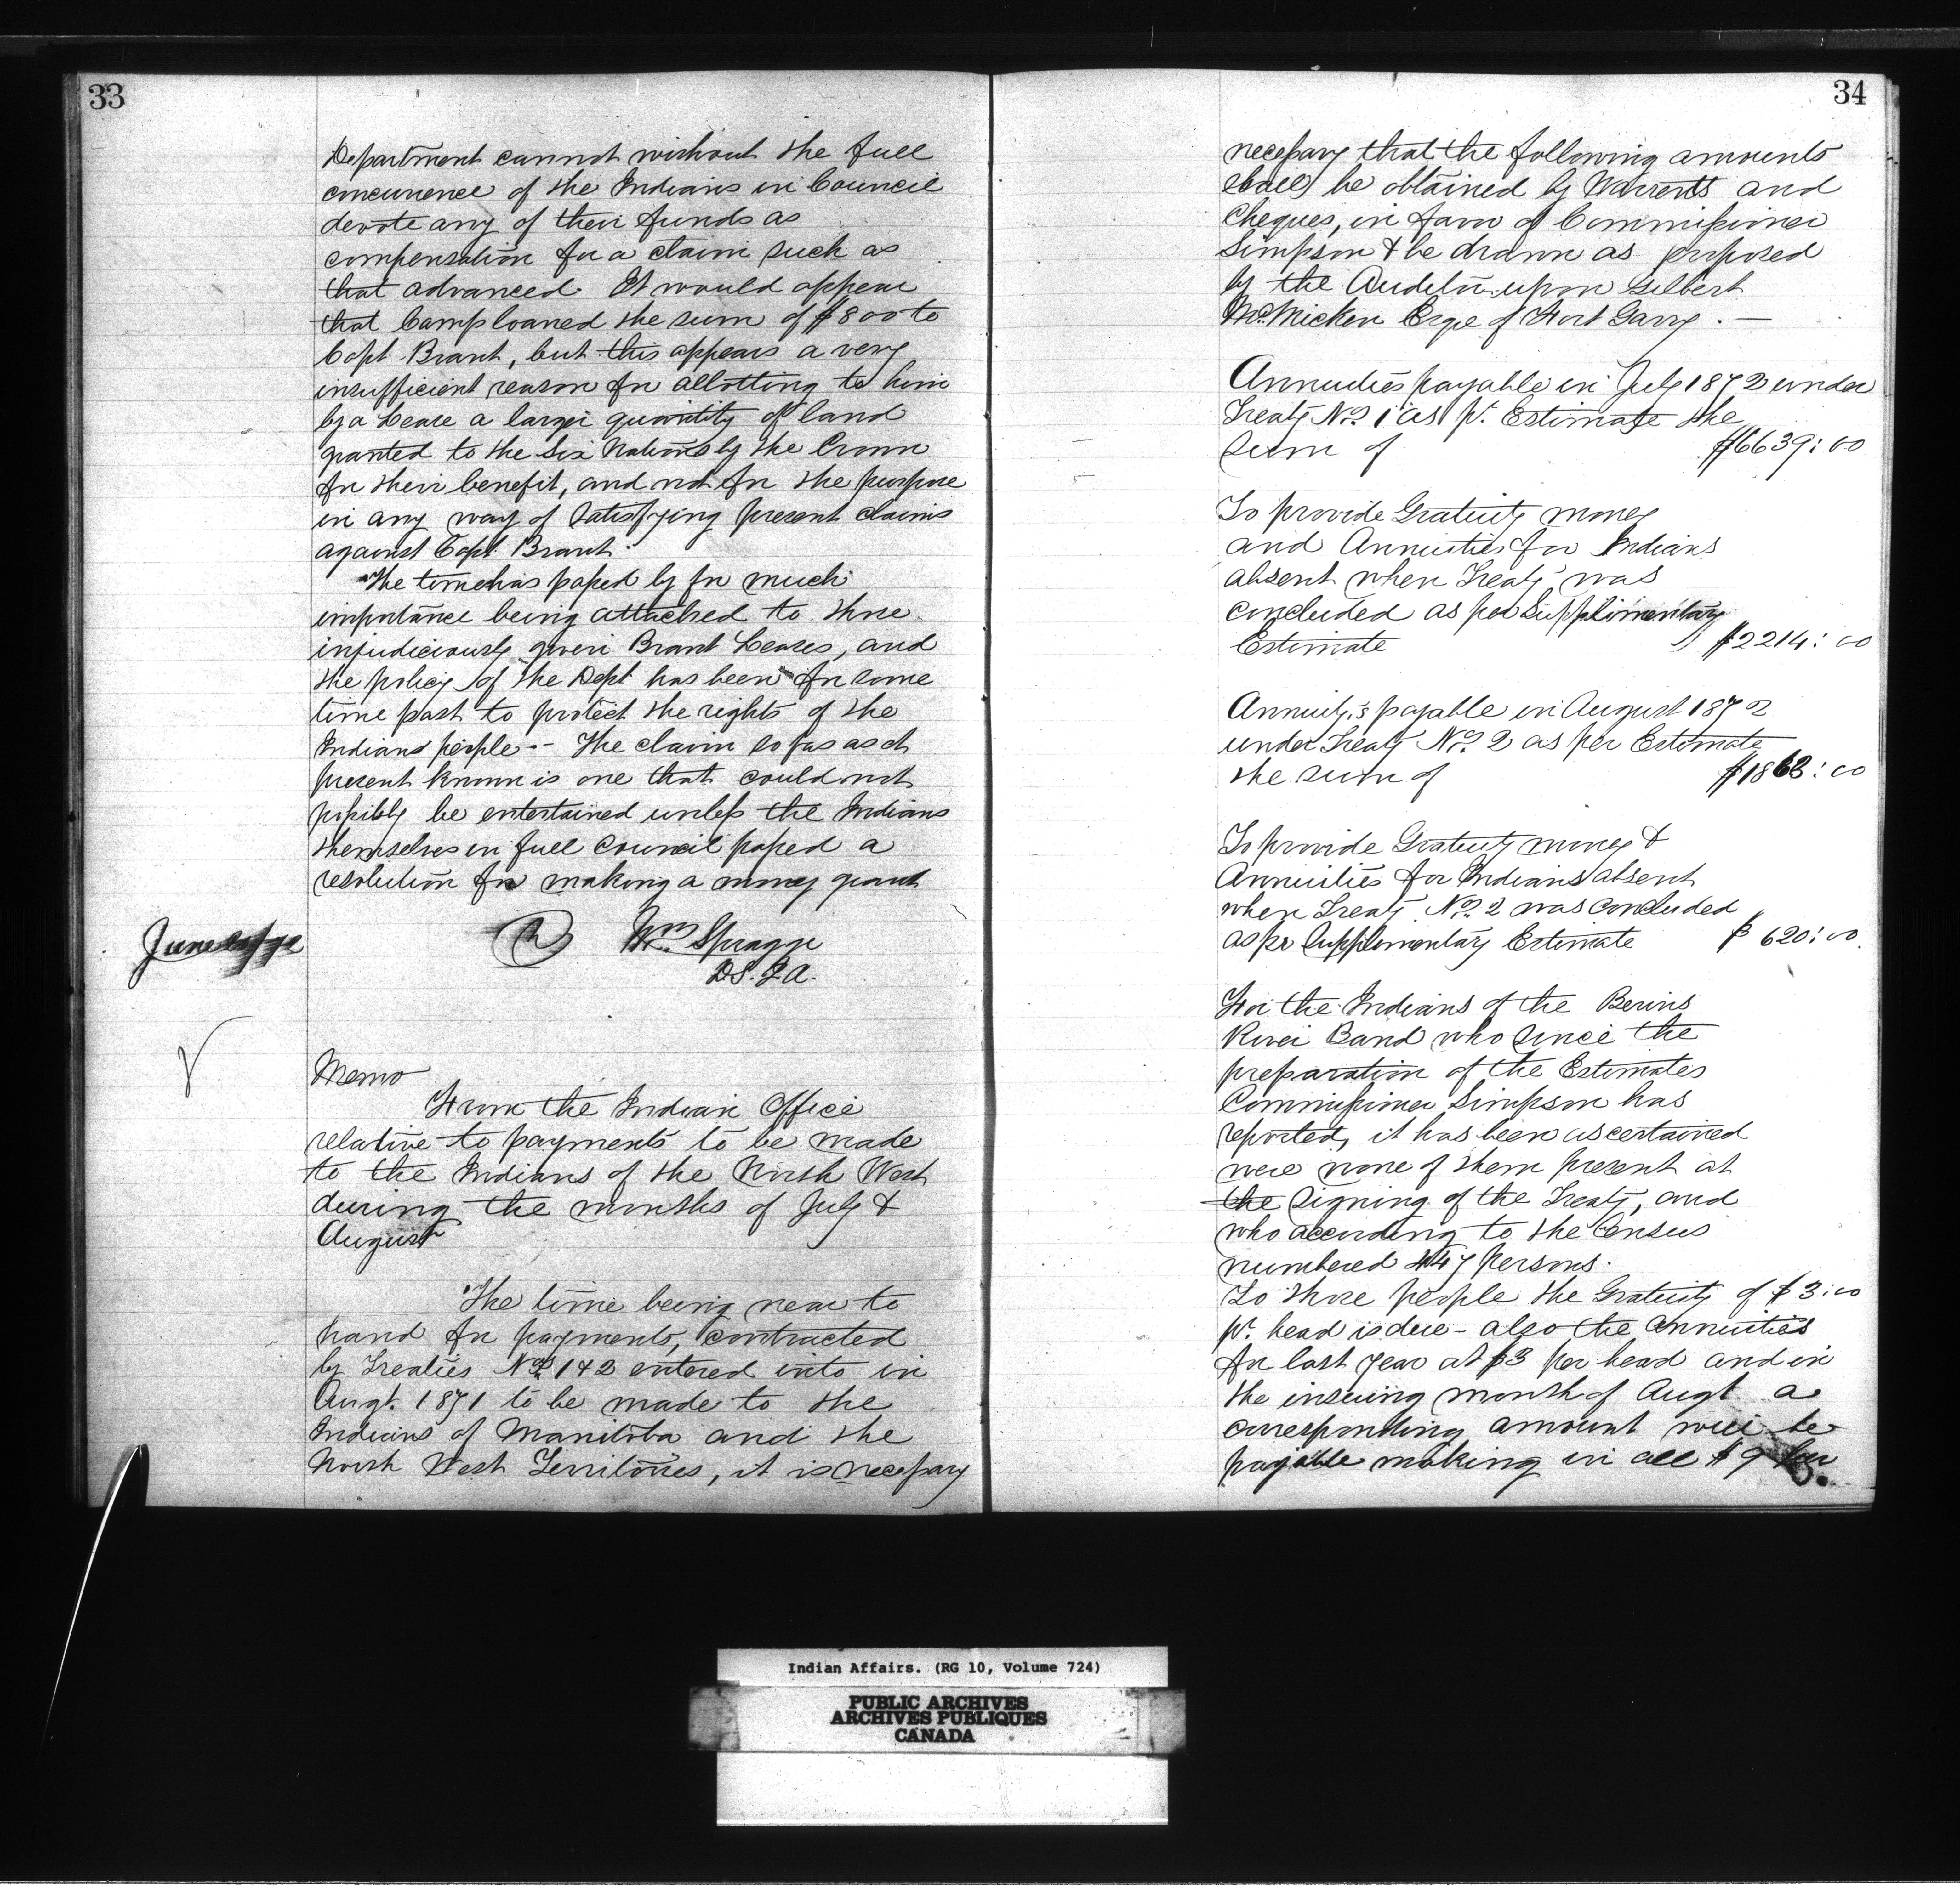 33
Department cannot without the full
concurrence of the Indians in Council
devote any of their funds as
compensation for a claim such as
that advanced. It would appear
that Camp loaned the sum of $800 to
Capt. Brant, but this appears a very
insufficient reason for allotting to him
by a Lease a larger quantity of land
granted to the Six Nations by the Crown
for their benefit, and not for the purpose
in any way of satisfying present claims
against Capt. Brant.
The time has passed by for much
importance being attached to those
injudiciously given Brant Leases, and
the policy of the Dept has been for some
time past to protect the rights of the
Indian people -- The claim so far as at
present known is one that could not
possibly be entertained unless the Indians
themselves in full Council passed a
resolution for making a money grant
Wm Spragge
D.S.I.A.
June
Memo
From the Indian Office
relative to payments to be made
to the Indians of the North West
during the months of July &
August
The time being near to
hand for payments, contracted
by Treaties Nos. 1 & 2 entered into in
Augt. 1871 to be made to the
Indians of Manitoba and the
North West Territories, it is necessary
34
necessary that the following amounts
shall be obtained by Warrents and
Cheques, in favor of Commissioner
Simpson & be drawn as proposed
by the Auditor upon Gilbert
McMicken Esqe of Fort Garry. —
Annuities payable in July 1872 under
Treaty No. 1 as pr. Estimate the
sum of $6639:00
To provide Gratuity money
and Annuities for Indians
absent when Treaty was
concluded as per Supplimentary
Estimate $2214:00
Annuity's payable in August 1872
under Treaty No. 2 as per Estimate
the sum of $1863:00
To provide Gratuity money &
Annuities for Indians absent
when Treaty No. 2 was concluded
as pr Supplimentary Estimate $620:00.
For the Indians of the Berins
River Band who since the
preparation of the Estimates
Commissioner Simpson has
reported, it has been ascertained
were none of them present at
the signing of the Treaty, and
who according to the Census
numbered 447 persons.
To those people the Gratuity of $3:00
pr. head is due - also the annuities
for last year at $3 per head and in
the insuing month of Augt a
corresponding amount will be
payable making in all $9 per
Indian Affairs. (RG 10, Volume 724)
PUBLIC ARCHIVES
ARCHIVES PUBLIQUES
CANADA